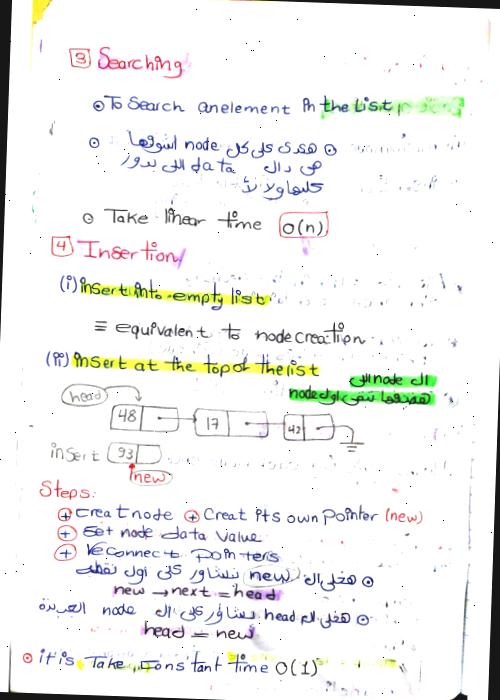 3 Searching
To Search an element in the List
هعدي على كل node اشوفها
هى دى ال data اللى بدور
عليها ولا لأ
Take linear time O(n)
4 Insertion
(i) insert into empty list
≡ equivalent to node creation
(ii) insert at the top of the list
ال node اللى
هضيفها تبقى اول node
head
48 17 42
insert 93
new
Steps:
+ creat node + Creat its own Pointer (new)
+ set node data value
+ Reconnect pointers
هخلى ال new تشاور على اول
new → next = head
هخلى ال head يشاور على ال node الجديدة
head = new
it is Take Constant time O(1)